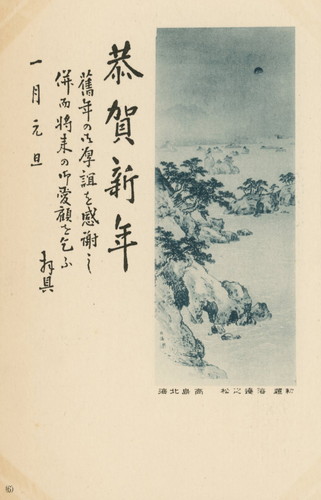 恭賀新年
舊年の御厚誼を感謝し
併而将来の御愛顧を乞ふ
拝具
一月元旦
高島北海